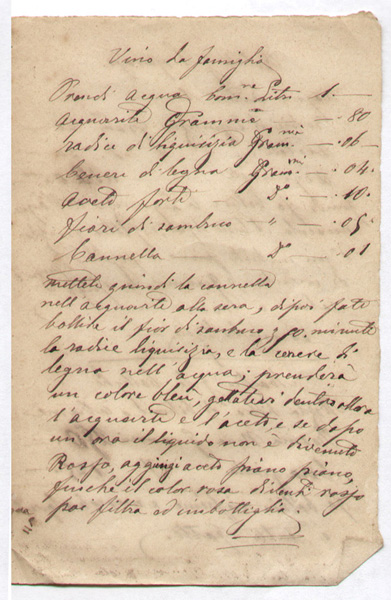 Vino da famiglia
Prendi acqua Com.ne Litri 1. —
acquavite Grammi — . 80
radice di liquirizia Gram.mi — . 06 —
Cenere di legna Gram.mi — . 04.
Aceto forte — D.o — . 10.
fiori di sambuco — " — . 05.
Cannella — D.o — . 01
mettete quindi la cannella
nell'acquavite alla sera, di poi fate
bollire il fior di sambuco 50. minuti
la radice liquirizia, e la cenere di
legna nell'acqua; prenderà
un colore bleu, gettatevi dentro allora
l'acquavite e l'aceto, e se dopo
un'ora il liquido non è divenuto
Rosso, aggiungi aceto piano piano
finchè il color rosa diventi rosso
poi filtra ed imbottiglia.